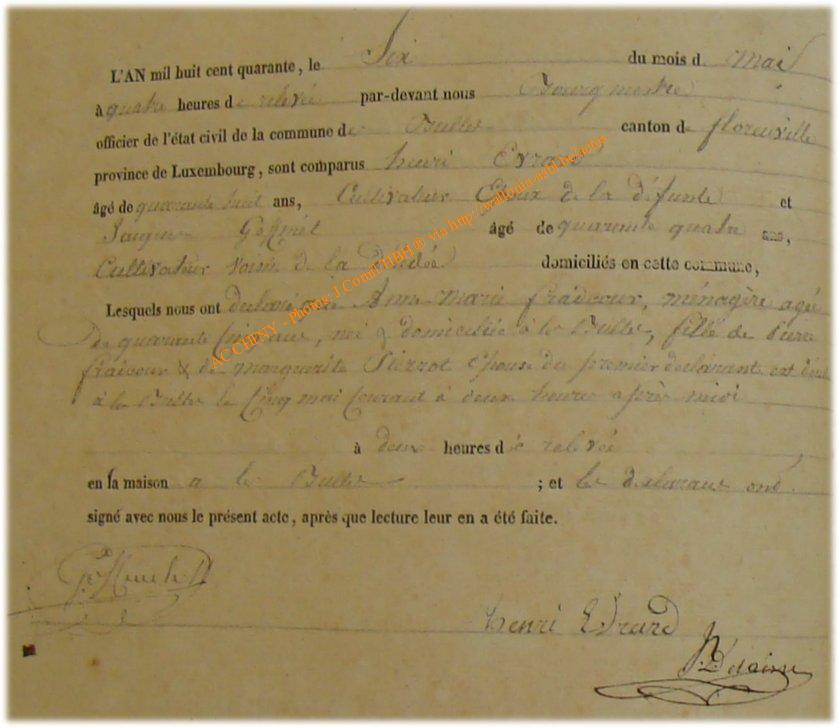 L'AN mil huit cent quarante, le Six du mois d. Mai
à quatre heures de relevé par-devant nous Bourgmestre
officier de l'état civil de la commune de Bulles canton de florenville
province de Luxembourg, sont comparus henri Evrard
âgé de quarante huit ans, Cultivateur Epoux de la défunte et
âgé de quarante quatre ans,
Cultivateur voisin de la domiciliés en cette commune,
Lesquels nous ont Anne Marie fraiceur, ménagère agée
de quarante ans, né & domiciliée à la Bulles, fille de
fraiceur & de marguerite Pierrot Epouse du premier declarant est
à la Bulles le Cinq mai Courant à deux heures après midi
à deux heures de relevée
en sa maison a la Bulles ; et les declarans ont
signé avec nous le présent acte, après que lecture leur en a été faite.
henri Evrard
ACCUEIL